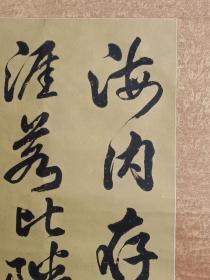 海内存
涯若比隣